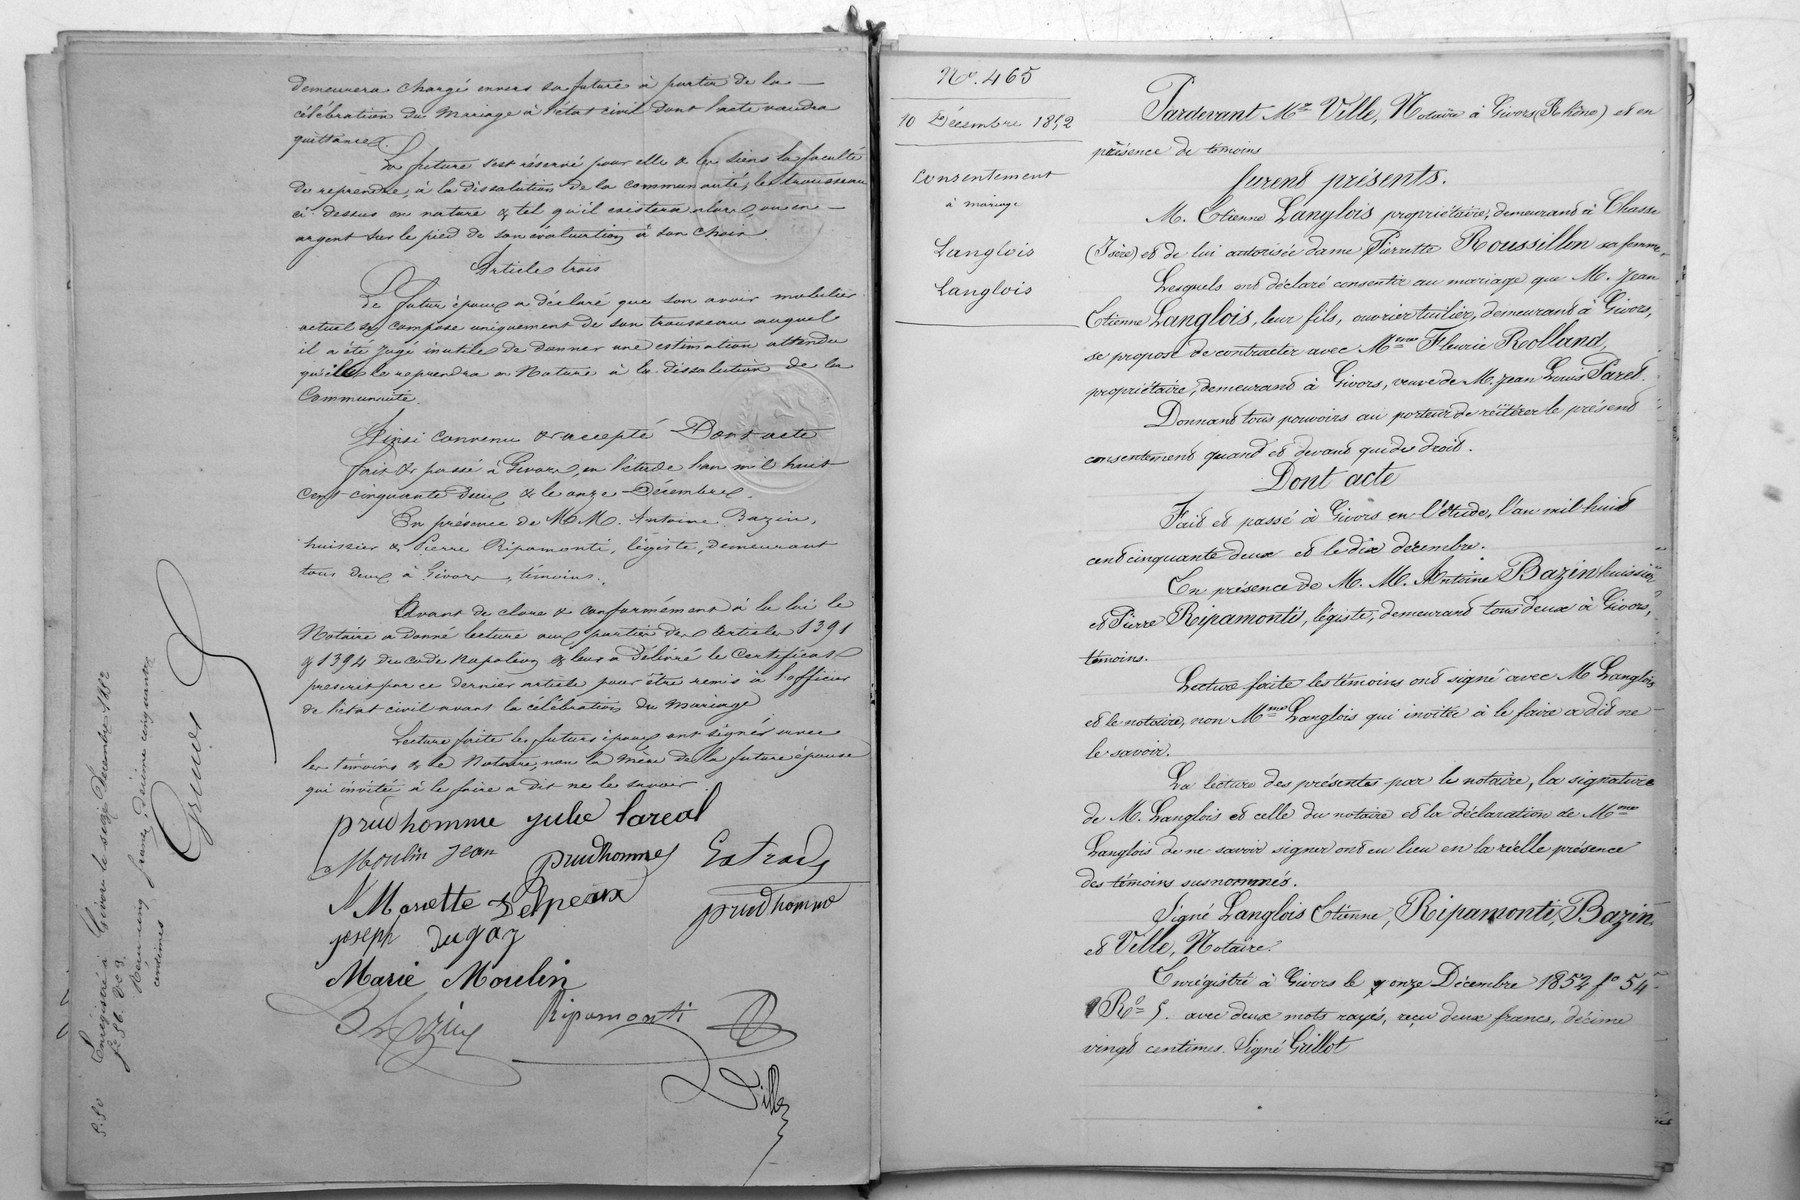 demeurera chargé envers sa future à partir de la
célébration du Mariage à l'état civil dont l'acte vaudra
quittance.
La future s'est réservé pour elle & les siens la faculté
de reprendre, à la dissolution de la communauté, le trousseau
ci dessus en nature & tel qu'il existera alors, ou en
argent sur le pied de son évaluation à son choix.
Article trois
Le futur époux a déclaré que son avoir mobilier
actuel se compose uniquement de son trousseau auquel
il a été jugé inutile de donner une estimation attendu
qu'il le reprendra en Nature à la dissolution de la
Communauté.
Ainsi convenu & accepté Dont acte
fait & passé à Givors, en l'étude l'an mil huit
cent cinquante deux & le onze Décembre.
En présence de M.M. Antoine Bazin,
huissier & Pierre Ripamonti, légiste, demeurant
tous deux à Givors, témoins.
Avant de clore & conformément à la loi le
Notaire a donné lecture aux parties des articles 1391
& 1394 du code Napoléon & leur a délivré le certificat
prescrit par ce dernier article pour être remis à l'officier
de l'état civil avant la célébration du Mariage
Lecture faite les futurs époux ont signés avec
les témoins & le Notaire, non la mère de la future épouse
qui invitée à le faire a dit ne le savoir.
prudhomme julie lareal
Moulin Jean prudhomme
Mariette prudhomme
joseph dugaz
Marie Moulin
Bazin Ripamonti
Ville
Enregistré à Givors le seize Décembre 1852
centimes
5.50
No. 465
10 Décembre 1852
Consentement
à mariage
Langlois
Langlois
Pardevant Me Ville, Notaire à Givors (Rhône) et en
présence de témoins
furent présents.
M. Etienne Langlois propriétaire, demeurant à Chasse
(Isère) et de lui autorisée dame Pierrette Roussillon sa femme,
Lesquels ont déclaré consentir au mariage que M. Jean
Etienne Langlois, leur fils, ouvrier tuilier, demeurant à Givors,
se propose de contracter avec Mme Fleurie Rolland,
propriétaire, demeurant à Givors, veuve de M. Jean Louis Paret.
Donnant tous pouvoirs au porteur de réitérer le présent
consentement quand et devant qui de droit.
Dont acte
Fait et passé à Givors en l'étude, l'an mil huit
cent cinquante deux et le dix décembre.
En présence de M. M. Antoine Bazin huissier
et Pierre Ripamonti, légiste, demeurant tous deux à Givors,
témoins.
Lecture faite les témoins ont signé avec M Langlois
et le notaire, non Mme Langlois qui invitée à le faire a dit ne
le savoir.
La lecture des présentes par le notaire, la signature
de M. Langlois et celle du notaire et la déclaration de Mme
Langlois de ne savoir signer ont eu lieu en la réelle présence
des témoins susnommés.
Signé Langlois Etienne, Ripamonti, Bazin
et Ville, Notaire.
Enregistré à Givors le onze Décembre 1852 fo 54
Ro 5. avec deux mots rayés, reçu deux francs, décime
vingt centimes. Signé Grillot